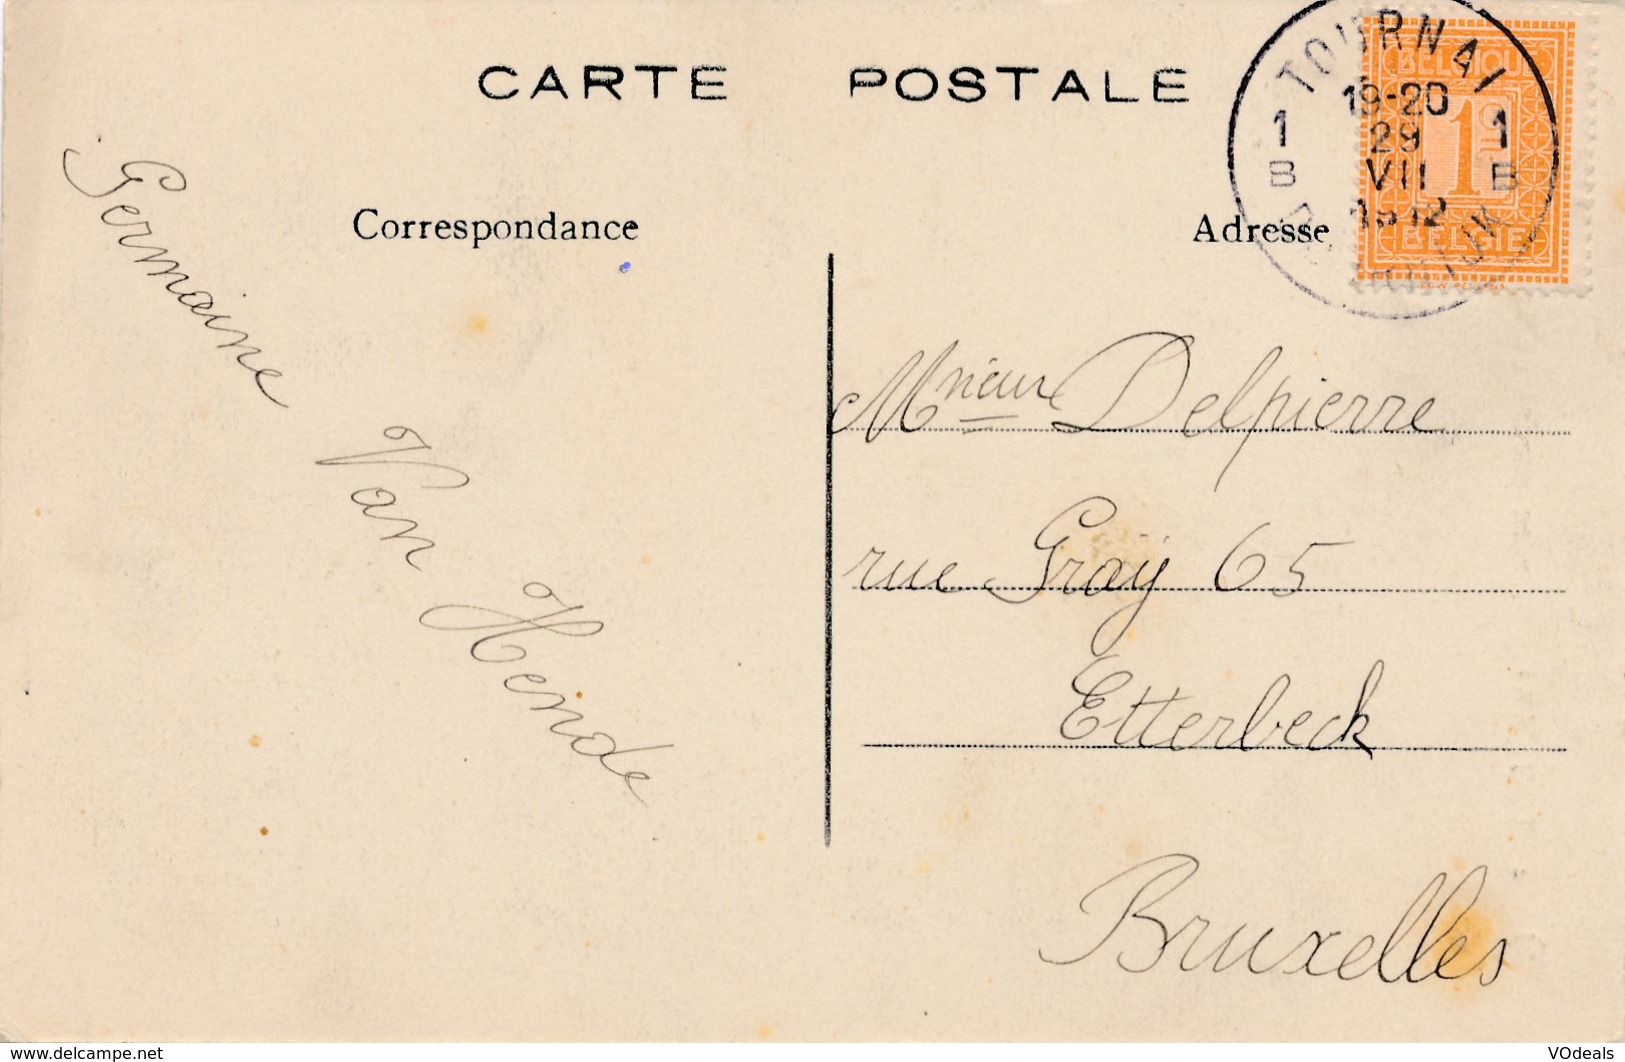 CARTE POSTALE
TOURNAI
1 1
B B
19-20
29
VII
1912
BELGIQUE
1
BELGIË
Correspondance
Adresse
Germaine
Van Hende
Mnieur Delpierre
rue Gray 65
Etterbeck
Bruxelles
www.delcampe.net
VOdeals